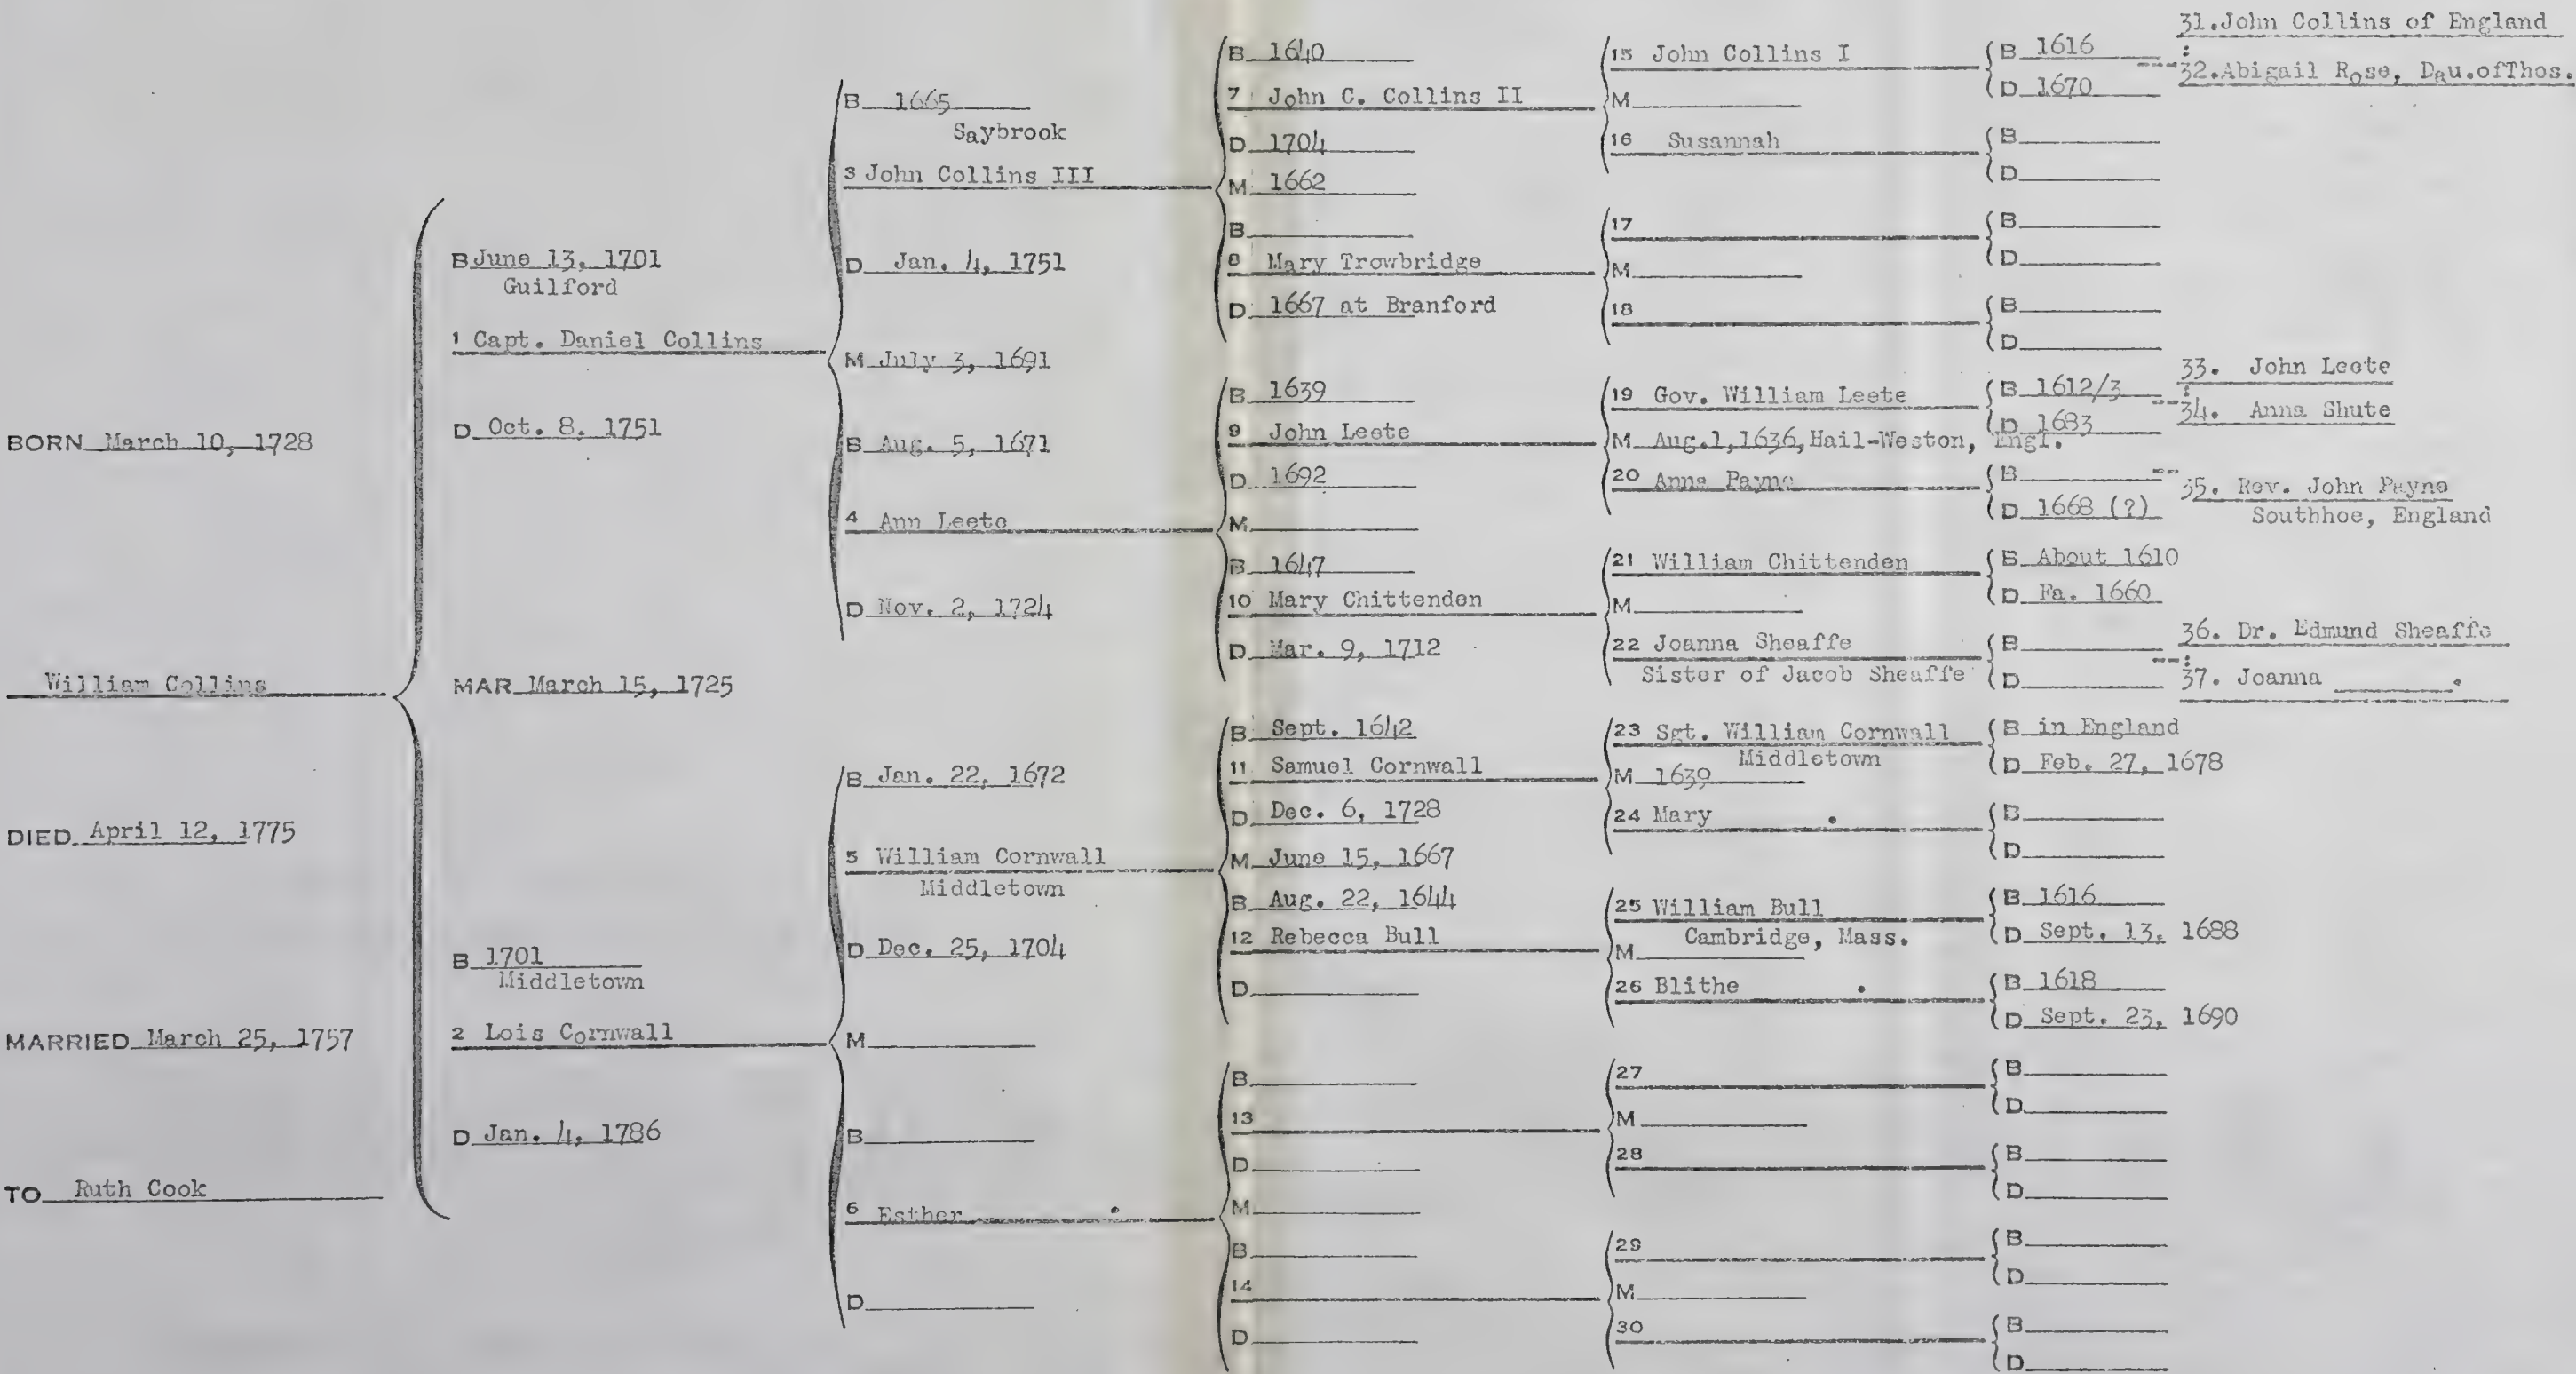 BORN March 10, 1728
William Collins
DIED April 12, 1775
MARRIED March 25, 1757
TO Ruth Cook
B June 13, 1701
Guilford
1 Capt. Daniel Collins
D Oct. 8, 1751
MAR March 15, 1725
B 1701
Middletown
2 Lois Cornwall
D Jan. 4, 1786
B 1665
Saybrook
3 John Collins III
D Jan. 4, 1751
M July 3, 1691
B Aug. 5, 1671
4 Ann Leete
D Nov. 2, 1724
B Jan. 22, 1672
5 William Cornwall
Middletown
D Dec. 25, 1704
M
B
6 Esther .
D
B 1640
7 John C. Collins II
D 1704
M 1662
B
8 Mary Trowbridge
D 1667 at Branford
B 1639
9 John Leete
D 1692
M
B 1647
10 Mary Chittenden
D Mar. 9, 1712
B Sept. 1642
11 Samuel Cornwall
D Dec. 6, 1728
M June 15, 1667
B Aug. 22, 1644
12 Rebecca Bull
D
B
13
D
M
B
14
D
15 John Collins I
M
16 Susannah
17
M
18
19 Gov. William Leete
M Aug.1,1636,Hail-Weston, Engl.
20 Anna Payne
21 William Chittenden
M
22 Joanna Sheaffe
Sister of Jacob Sheaffe
23 Sgt. William Cornwall
Middletown
M 1639
24 Mary .
25 William Bull
Cambridge, Mass.
M
26 Blithe .
27
M
28
29
M
30
B 1616
D 1670
B
D
B
D
B
D
B 1612/3
D 1683
B
D 1668 (?)
B About 1610
D Fa. 1660
B
D
B in England
D Feb. 27, 1678
B
D
B 1616
D Sept. 13, 1688
B 1618
D Sept. 23, 1690
B
D
B
D
B
D
B
D
31.John Collins of England
32.Abigail Rose, Dau.ofThos.
33. John Leete
34. Anna Shute
35. Rev. John Payne
Southhoe, England
36. Dr. Edmund Sheaffe
37. Joanna .